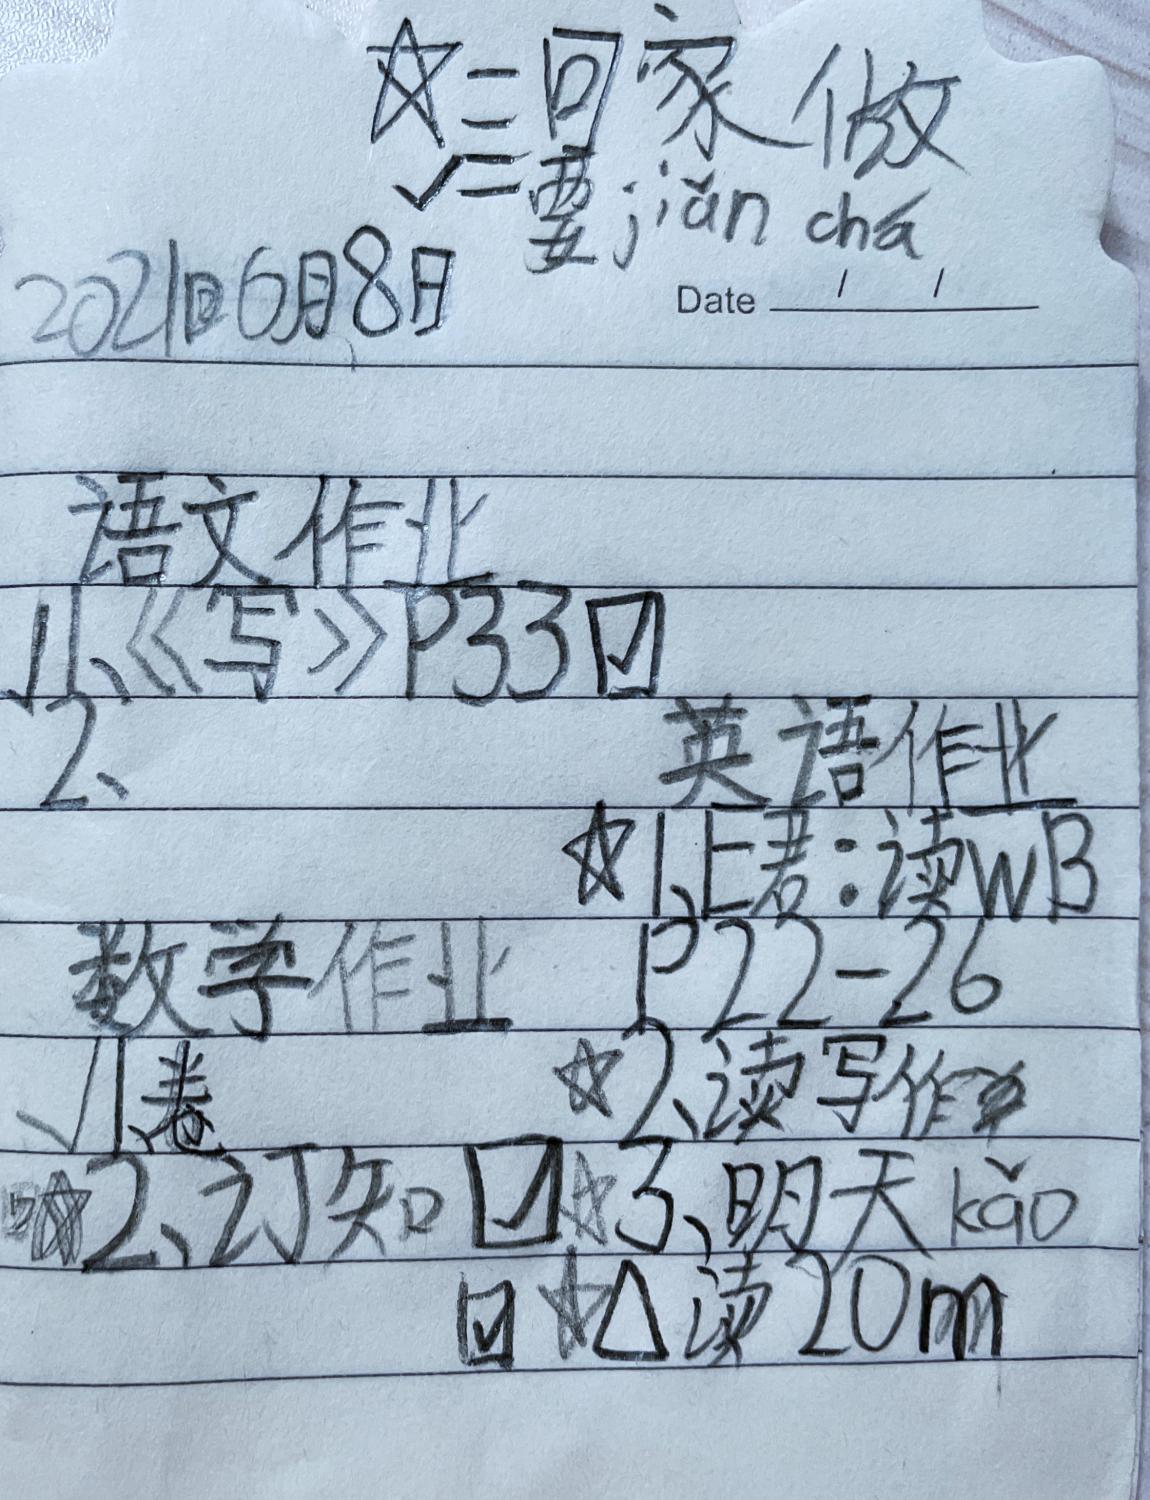 ☆=回家做
✓=要jiǎn chá
2021回6月8日
Date / /
语文作业
✓1、《写》P33 ☑
2、
英语作业
☆1、E君:读WB
P22-26
数学作业
✓1、卷
☆2、订知 ☑
☆2、读写作
☆3、明天kǎo
☑ ☆△读20m